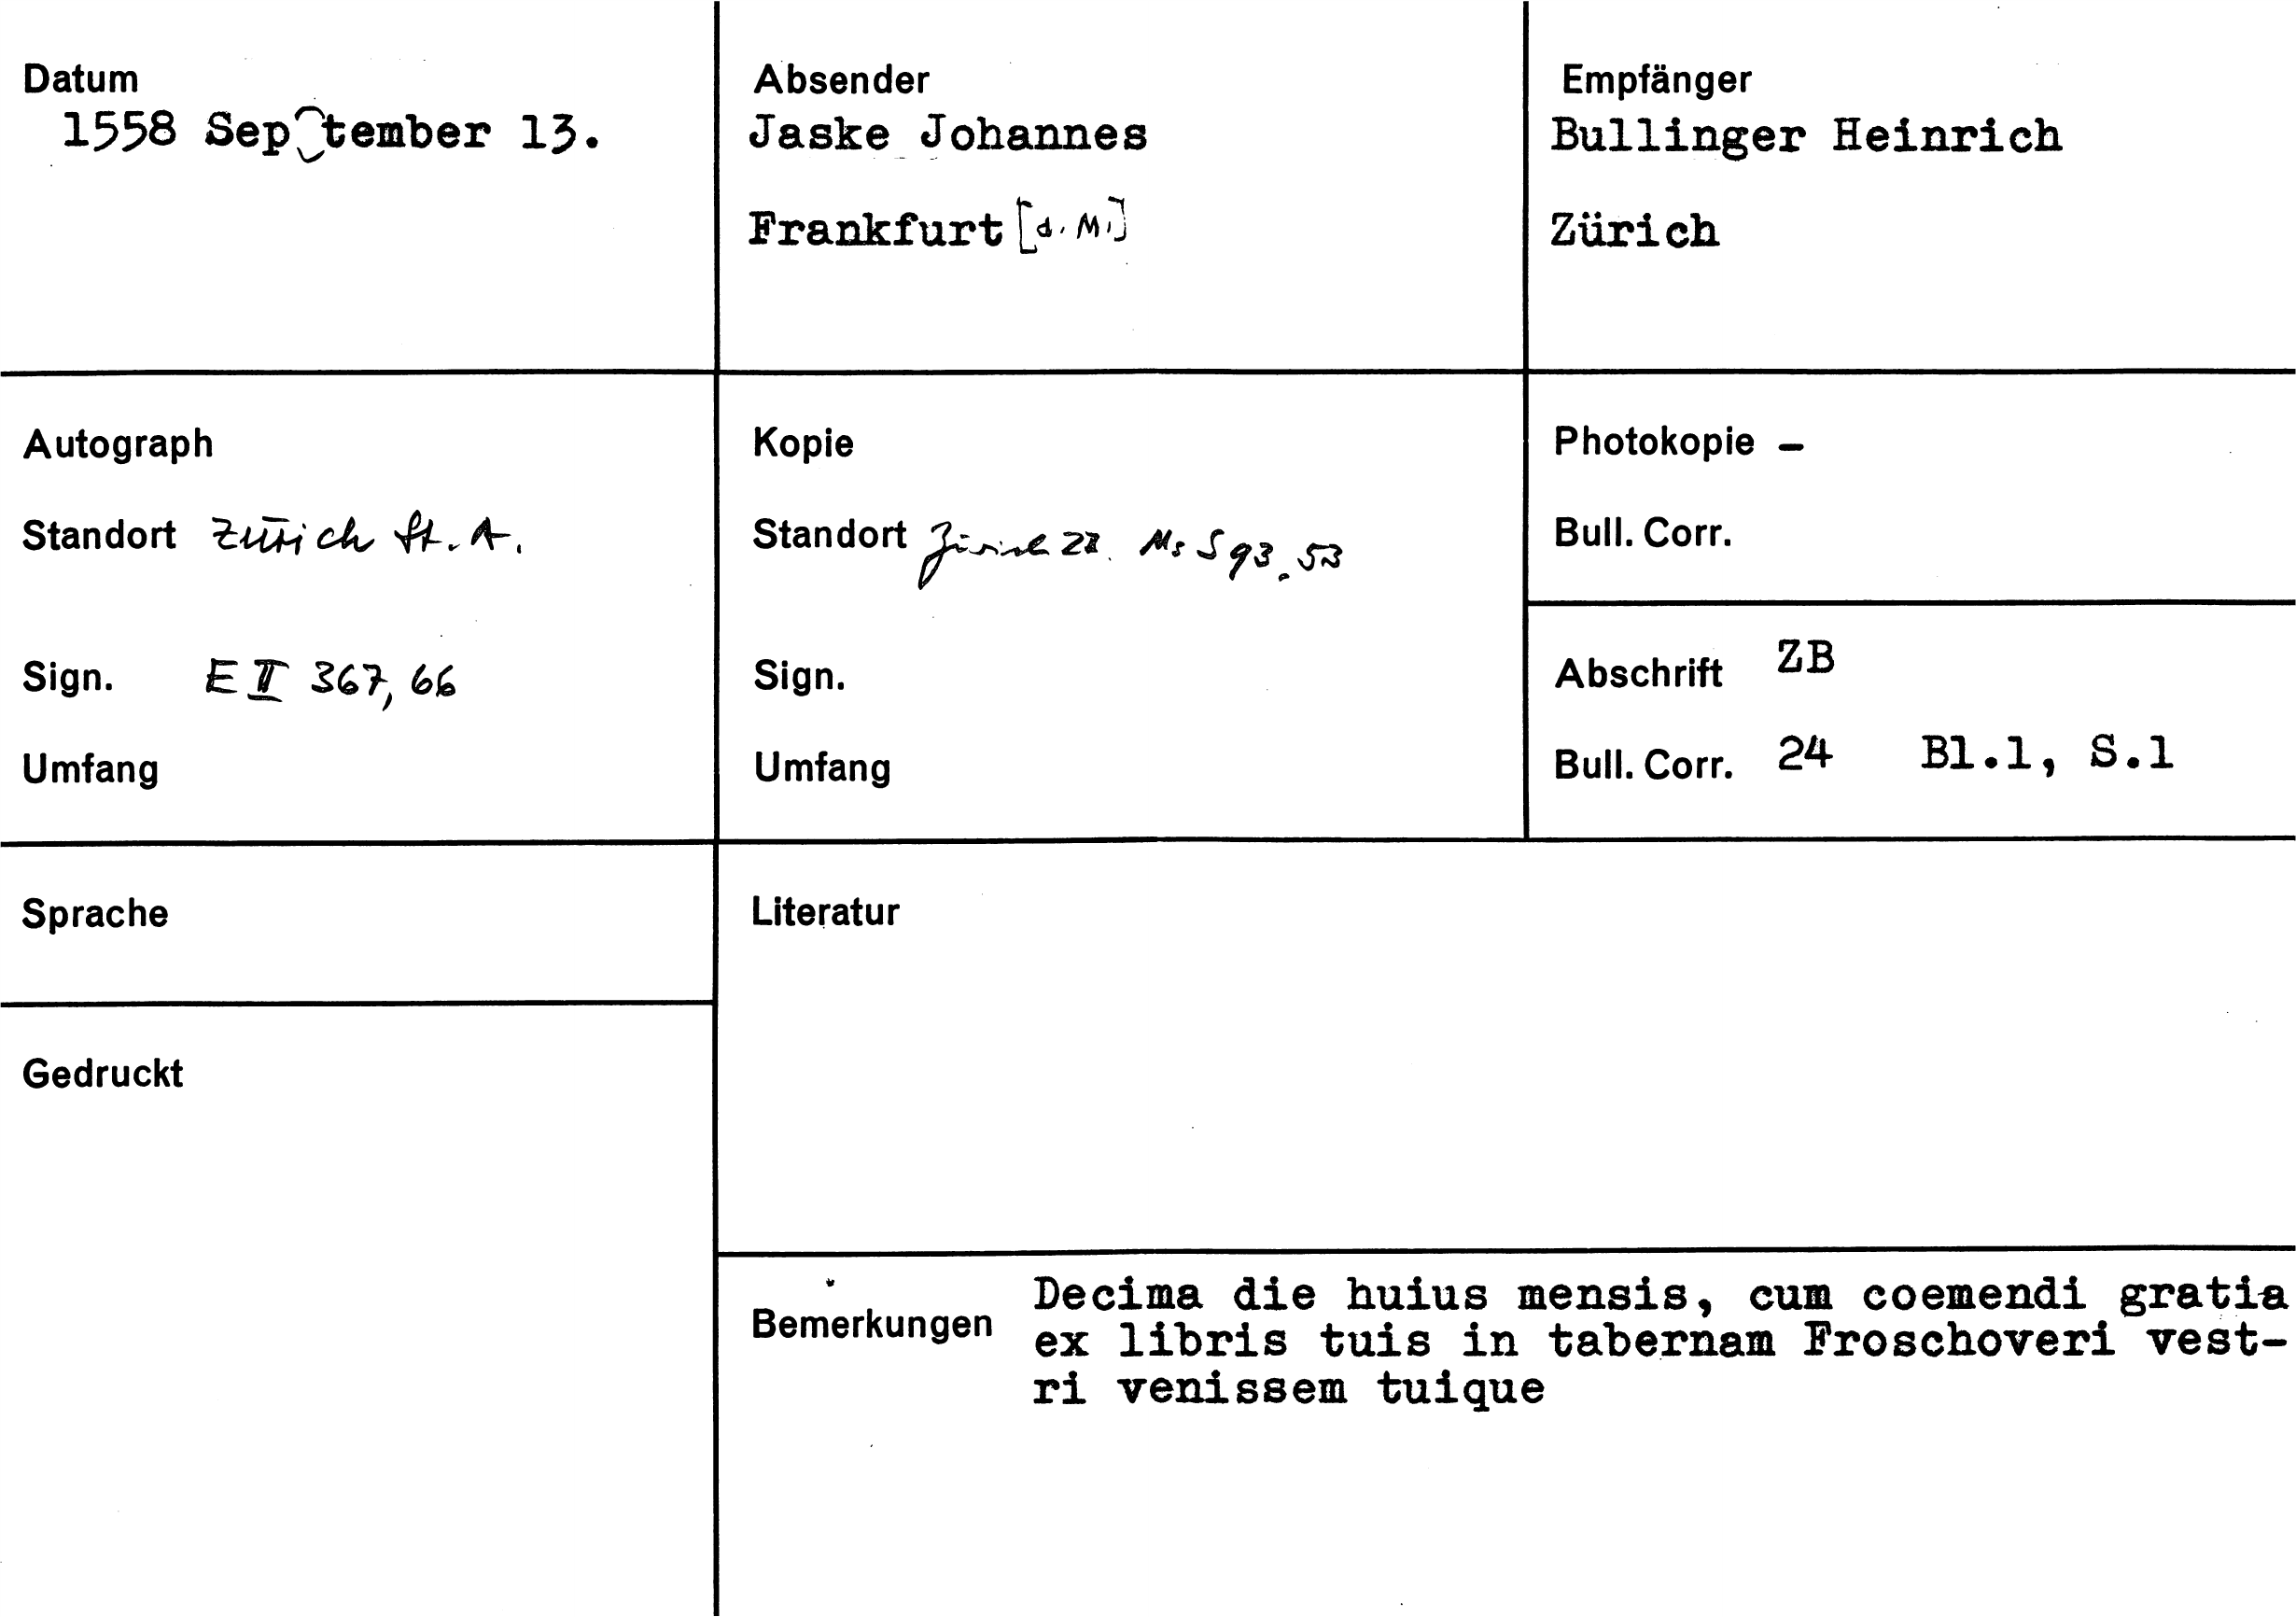 Datum
1558 September 13.
Absender
Jaske Johannes
Frankfurt [a. M.]
Empfänger
Bullinger Heinrich
Zürich
Autograph
Standort Zürich St. A.
Sign. E II 367, 66
Umfang
Kopie
Standort Zürich ZB. Ms S 93.53
Sign.
Umfang
Photokopie –
Bull. Corr.
Abschrift ZB
Bull. Corr. 24 Bl.1, S.1
Sprache
Literatur
Gedruckt
Bemerkungen
Decima die huius mensis, cum coemendi gratia
ex libris tuis in tabernam Froschoveri vest-
ri venissem tuique